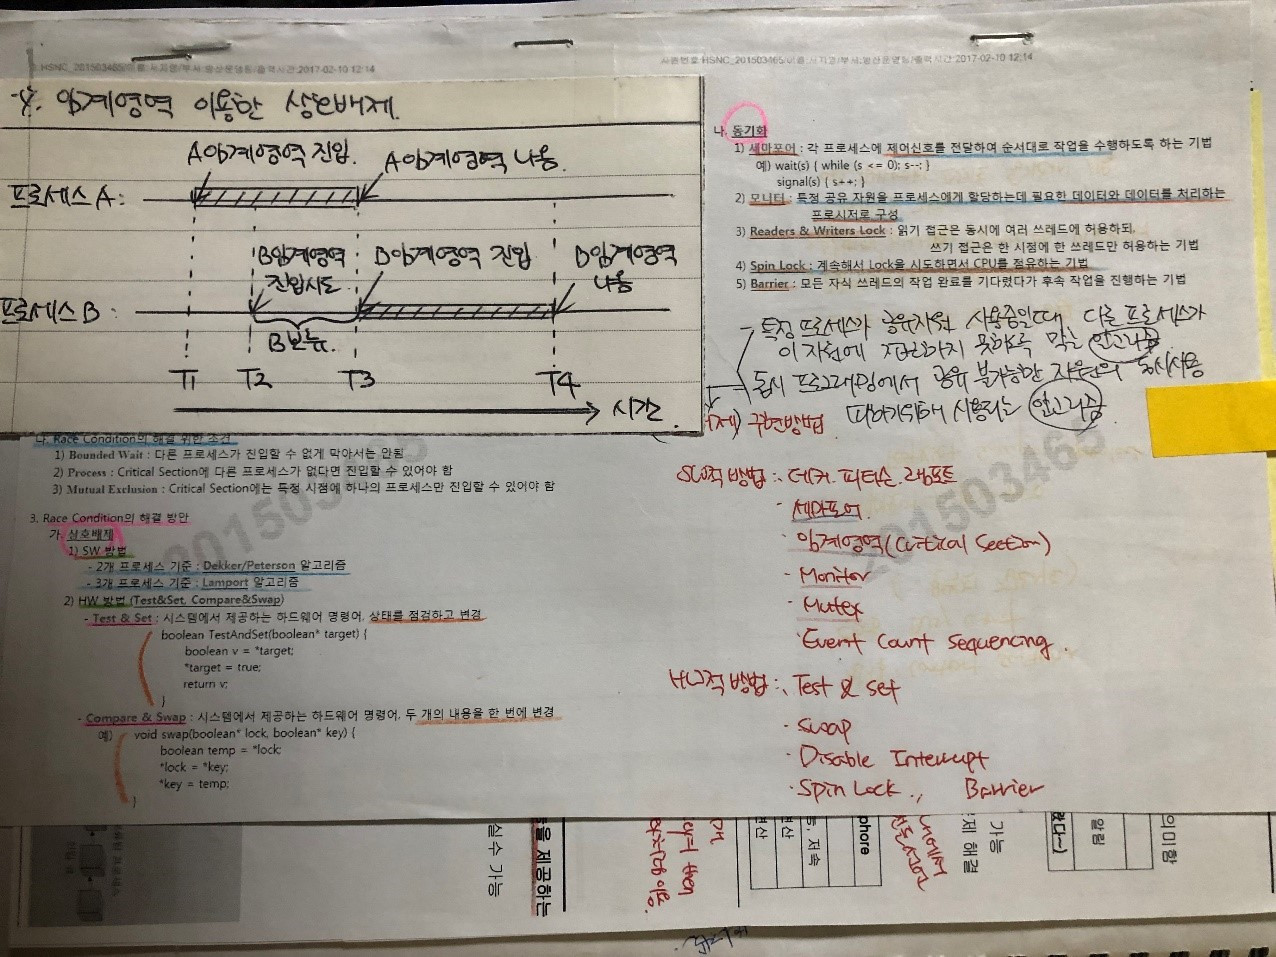 HSNC_201503465/이름:서지열/부서:양산운영팀/출력시간:2017-02-10 12:14
사원번호:HSNC_201503465/이름:서지열/부서:양산운영팀/출력시간:2017-02-10 12:14
임계영역 이용한 상호배제.
A임계영역 진입.
A임계영역 나옴.
프로세스 A:
B임계영역 진입시도
B임계영역 진입
B임계영역 나옴
프로세스 B:
B보류.
T1 T2 T3 T4
시간.
나. Race Condition의 해결 위한 조건
1) Bounded Wait : 다른 프로세스가 진입할 수 없게 막아서는 안됨
2) Process : Critical Section에 다른 프로세스가 없다면 진입할 수 있어야 함
3) Mutual Exclusion : Critical Section에는 특정 시점에 하나의 프로세스만 진입할 수 있어야 함
3. Race Condition의 해결 방안
가. 상호배제
1) SW 방법
- 2개 프로세스 기준 : Dekker/Peterson 알고리즘
- 3개 프로세스 기준 : Lamport 알고리즘
2) HW 방법 (Test&Set, Compare&Swap)
- Test & Set : 시스템에서 제공하는 하드웨어 명령어, 상태를 점검하고 변경
boolean TestAndSet(boolean* target) {
boolean v = *target;
*target = true;
return v;
}
- Compare & Swap : 시스템에서 제공하는 하드웨어 명령어, 두 개의 내용을 한 번에 변경
예) void swap(boolean* lock, boolean* key) {
boolean temp = *lock;
*lock = *key;
*key = temp;
}
나. 동기화
1) 세마포어 : 각 프로세스에 제어신호를 전달하여 순서대로 작업을 수행하도록 하는 기법
예) wait(s) { while (s <= 0); s--; }
signal(s) { s++; }
2) 모니터 : 특정 공유 자원을 프로세스에게 할당하는데 필요한 데이터와 데이터를 처리하는
프로시저로 구성
3) Readers & Writers Lock : 읽기 접근은 동시에 여러 쓰레드에 허용하되,
쓰기 접근은 한 시점에 한 쓰레드만 허용하는 기법
4) Spin Lock : 계속해서 Lock을 시도하면서 CPU를 점유하는 기법
5) Barrier : 모든 자식 쓰레드의 작업 완료를 기다렸다가 후속 작업을 진행하는 기법
특정 프로세스가 공유자원 사용중일때 다른 프로세스가
이 자원에 접근하지 못하록 막는 알고리즘
동시 프로그래밍에서 공유 불가능한 자원의 동시사용
피하기위해 사용되는 알고리즘
구현방법
SW적 방법: 데커. 피터슨. 램포트
· 세마포어.
· 임계영역(Critical Section)
· Monitor
· Mutex
· Event Count Sequencing.
HW적 방법: Test & Set
· Swap
· Disable Interrupt
· Spin Lock., Barrier
201503465
201503465
실수 가능
을 제공하는
연산
연산
등, 저속
phore
제 해결
가능
알림
의미함